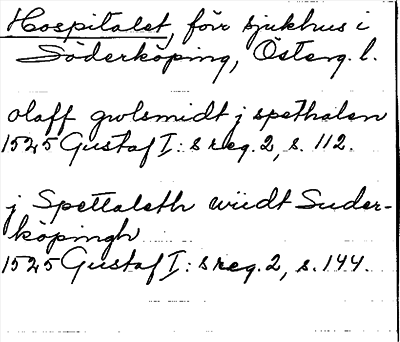 Hospitalet, förr sjukhus i
Söderköping, Österg. l.
olaff gwlsmidt j spethalen
1525 Gustaf I:s reg. 2, s. 112.
j Spettaleth wiidt Suder-
köpingh
1525 Gustaf I:s reg. 2, s. 144.